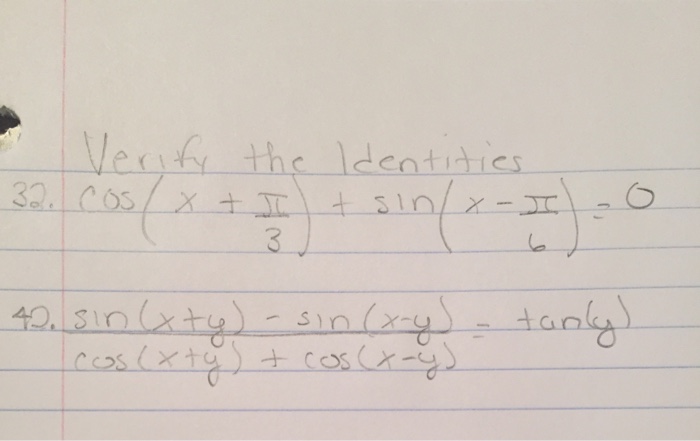 Verify the Identities
32. cos(x + π/3) + sin(x - π/6) = 0
42. sin(x+y) - sin(x-y) / cos(x+y) + cos(x-y) = tan(y)